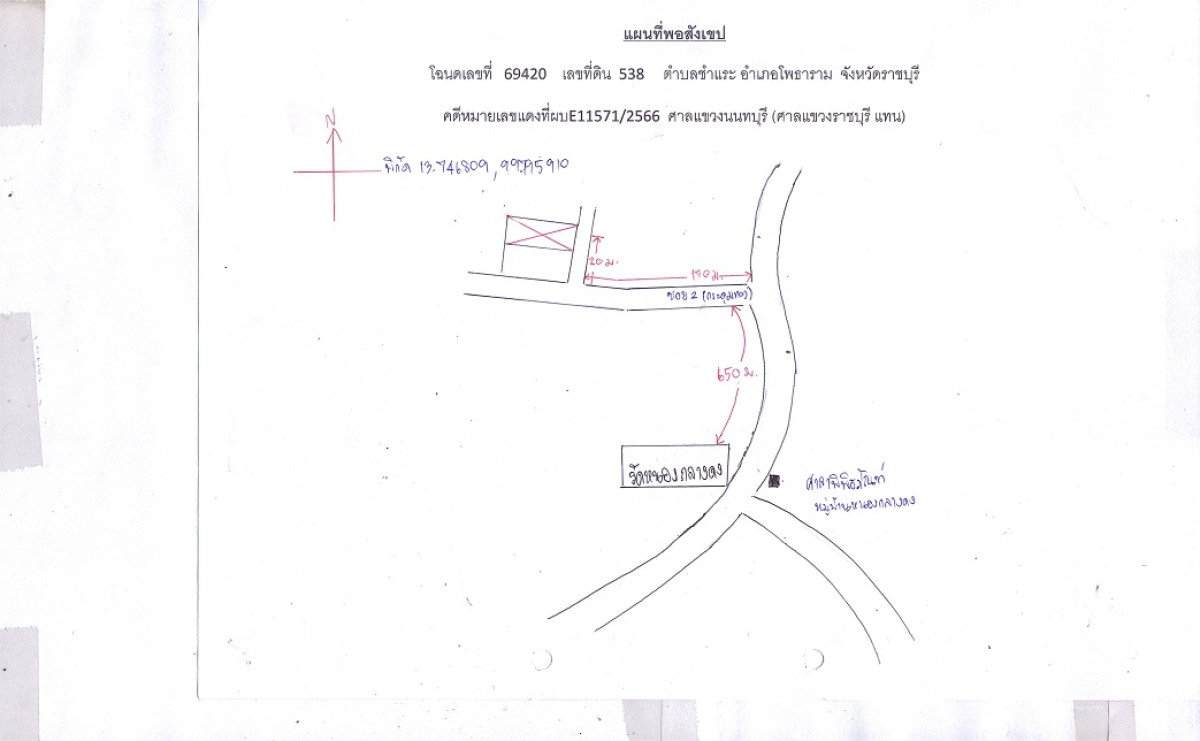 แผนที่พอสังเขป
โฉนดเลขที่ 69420 เลขที่ดิน 538 ตำบลชำแระ อำเภอโพธาราม จังหวัดราชบุรี
คดีหมายเลขแดงที่ผบE11571/2566 ศาลแขวงนนทบุรี (ศาลแขวงราชบุรี แทน)
N
พิกัด 13.746809,
20 ม.
190 ม.
ซอย 2
650 ม.
วัดหนองกลางดง
หมู่บ้านหนองกลางดง